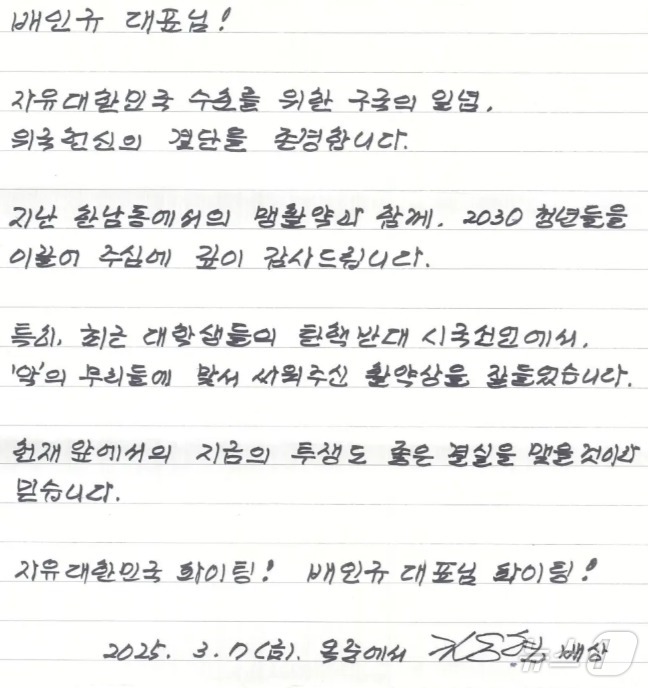 배인규 대표님!
자유대한민국 수호를 위한 구국의 일념,
위국헌신의 결단을 존경합니다.
지난 한남동에서의 맹활약과 함께, 2030 청년들을
이끌어 주심에 깊이 감사드립니다.
특히, 최근 대학생들의 탄핵반대 시국선언에서,
'악'의 무리들에 맞서 싸워주신 활약상을 잘들었습니다.
헌재 앞에서의 지금의 투쟁도 좋은 결실을 맺을 것이라
믿습니다.
자유대한민국 화이팅! 배인규 대표님 화이팅!
2025. 3. 7(금). 옥중에서 배상
뉴스1